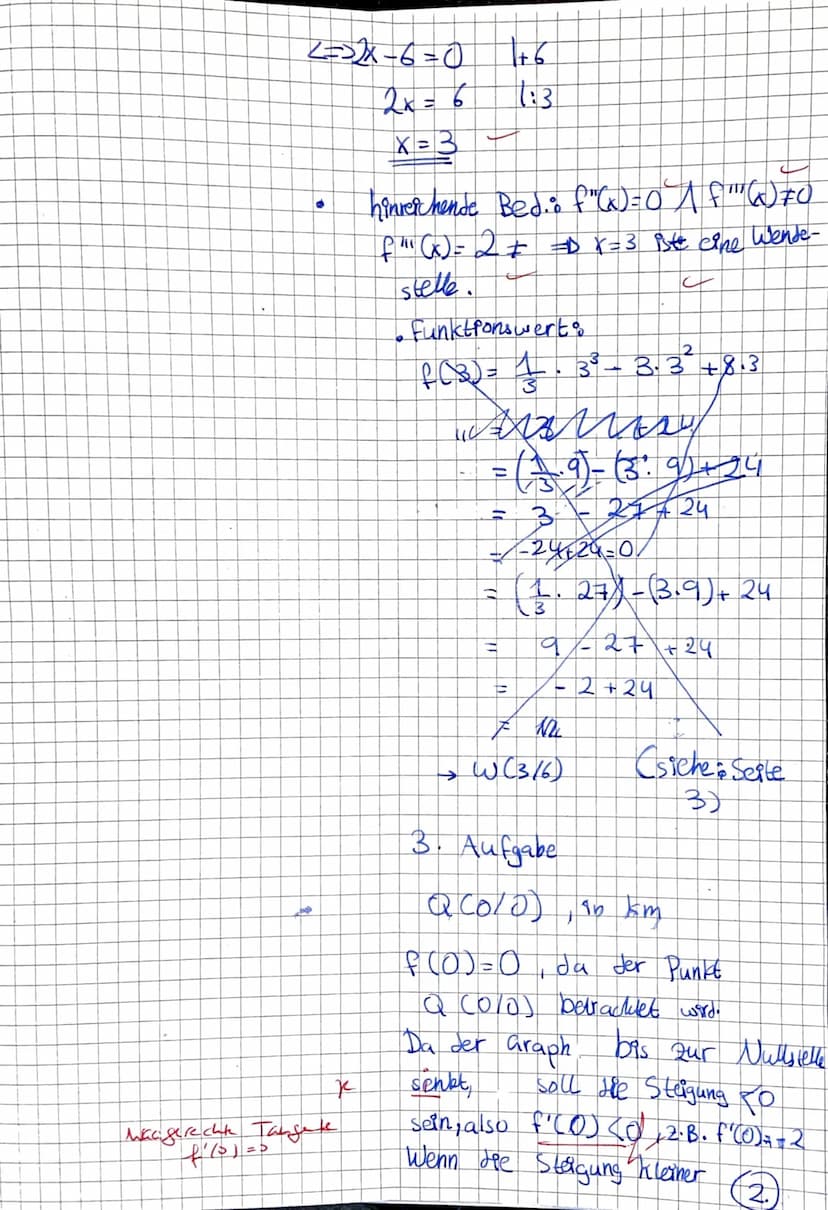 <=> 2x - 6 = 0 |+6
2x = 6 |:3
x = 3
• hinreichende Bed.: f''(x)=0 ∧ f'''(x)≠0
f'''(x)= 2 ≠ => x=3 ist eine Wende-
stelle.
• Funktionswert:
f(3)= 1/3 · 3³ - 3·3² + 8·3
= (1/3 · 9) - (3 · 9) + 24
= 3 - 27 + 24
= -24+24=0
= (1/3 · 27) - (3·9) + 24
= 9 - 27 + 24
= - 2 + 24
=
→ W(3/6) (siehe: Seite
3)
3. Aufgabe
Q(0/0), in km
f(0)=0, da der Punkt
Q(0/0) betrachtet wird.
Da der Graph bis zur Nullstelle
senkt, soll die Steigung <0
sein, also f'(0)<0, z.B. f'(0)=-2
Waagerechte Tangente
f'(0)=0
Wenn die Steigung kleiner
2.